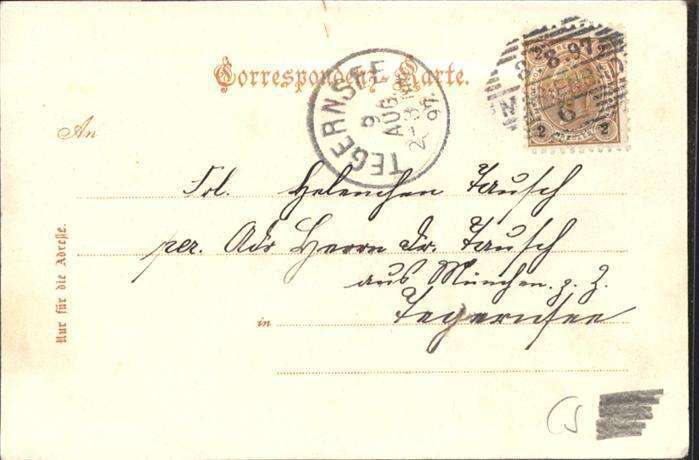 Correspondenz-Karte.
TEGERNSEE
9
AUG.
97.
8 97
2 2
An
Frl. Helenchen Tausch
per. Adr Herrn Dr. Tausch
aus München. z. Z.
in Tegernsee
Nur für die Adresse.